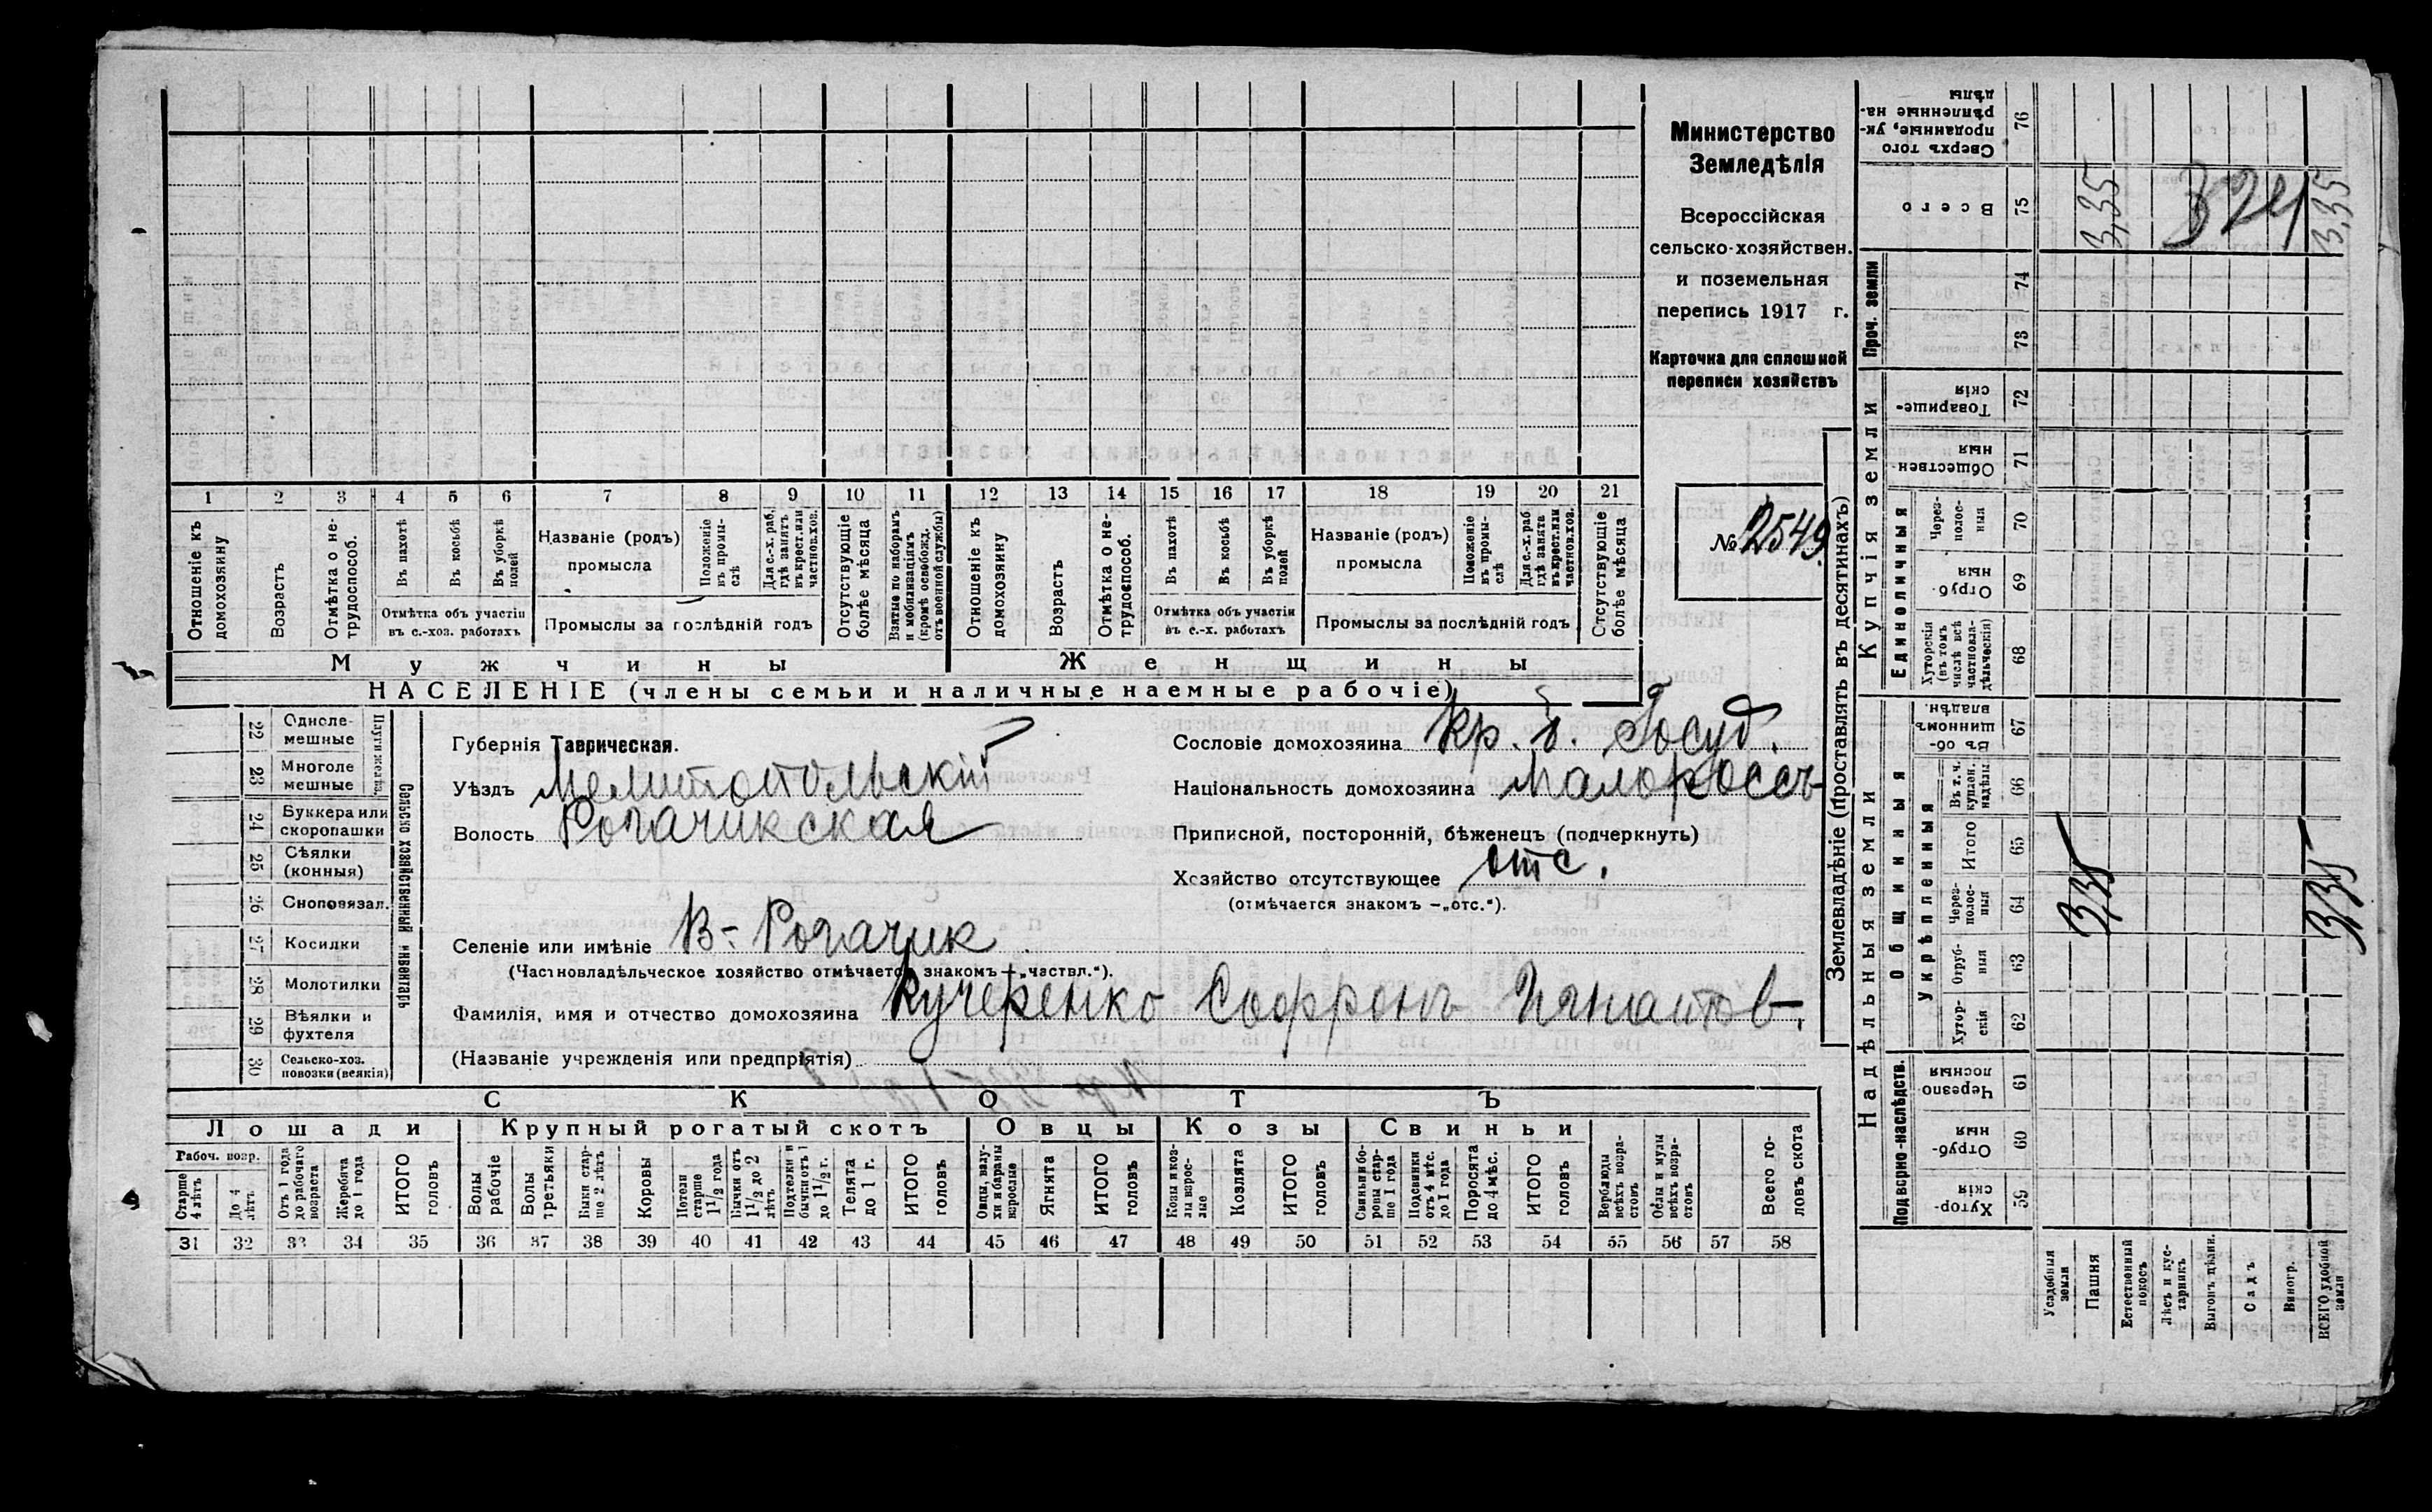 1 2 3 4 5 6 7 8 9 10 11 12 13 14 15 16 17 18 19 20 21
Отношеніе къ домохозяину
Возрастъ
Отмѣтка о не-
трудоспособ.
Въ пахотѣ
Въ косьбѣ
Въ уборкѣ
полей
Отмѣтка объ участіи
въ с.-хоз. работахъ
Названіе (родъ)
промысла
Положеніе
въ промы-
слѣ
Для с.-х. раб.
гдѣ занятъ
въ крест. или
частновл. хоз.
Промыслы за послѣдній годъ
Отсутствующіе
болѣе мѣсяца
Взятые по наборамъ
и мобилизаціямъ
(кромѣ освобожд.
отъ военной службы)
Отношеніе къ
домохозяину
Возрастъ
Отмѣтка о не-
трудоспособ.
Въ пахотѣ
Въ косьбѣ
Въ уборкѣ
полей
Отмѣтка объ участіи
въ с.-х. работахъ
Названіе (родъ)
промысла
Положеніе
въ промы-
слѣ
Для с.-х. раб
гдѣ занята
въ крест. или
частновл. хоз.
Промыслы за послѣдній годъ
Отсутствующіе
болѣе мѣсяца
Мужчины
Женщины
НАСЕЛЕНІЕ (члены семьи и наличные наемные рабочіе)
Министерство
Земледѣлія
Всероссійская
сельско-хозяйствен.
и поземельная
перепись 1917 г.
Карточка для сплошной
переписи хозяйствъ
№ 2549
22 Одноле-
мешные
23 Многоле
мешные
Плуги желѣз.
24 Буккера или
скоропашки
25 Сѣялки
(конныя)
26 Сноповязал.
27 Косилки
28 Молотилки
29 Вѣялки и
фухтеля
30 Сельско-хоз.
повозки (всякія)
Сельско хозяйственный инвентарь
Губернія Таврическая.
Уѣздъ Мелитопольскій
Волость Рогачикская
Селеніе или имѣніе В-Рогачик
(Частновладѣльческое хозяйство отмѣчается знакомъ „частвл.“).
Фамилія, имя и отчество домохозяина Кучеренко Софронъ Игнатов.
(Названіе учрежденія или предпріятія)
Сословіе домохозяина Кр. б. Госуд.
Національность домохозяина Малороссъ
Приписной, посторонній, бѣженецъ (подчеркнуть)
Хозяйство отсутствующее отс.
(отмѣчается знакомъ —„отс.“).
СКОТЪ
Лошади
Крупный рогатый скотъ
Овцы
Козы
Свиньи
Рабоч. возр.
Старше
4 лѣтъ
До 4
лѣтъ
Отъ 1 года
до рабочаго
возраста
Жеребята
до 1 года
ИТОГО
головъ
Волы
рабочіе
Волы
третьяки
Быки стар-
ше 2 лѣтъ
Коровы
Нетели
старше
1 1/2 года
Бычки отъ
1 1/2 до 2
лѣтъ
Подтелки и
бычки отъ 1
до 1 1/2 г.
Телята
до 1 г.
ИТОГО
головъ
Овцы, валу-
хи и бараны
взрослые
Ягнята
ИТОГО
головъ
Козы и коз-
лы взрос-
лые
Козлята
ИТОГО
головъ
Свиньи и бо-
ровы стар-
ше 1 года
Подсвинки
отъ 4 мѣс.
до 1 года
Поросята
до 4 мѣс.
ИТОГО
головъ
Верблюды
всѣхъ возра-
стовъ
Ослы и мулы
всѣхъ возра-
стовъ
Всего го-
ловъ скота
31 32 33 34 35 36 37 38 39 40 41 42 43 44 45 46 47 48 49 50 51 52 53 54 55 56 57 58
Землевладѣніе (проставлять въ десятинахъ)
Надѣльныя земли
Купчія земли
Проч. земли
Подворно-наслѣдств.
Общинныя
Укрѣпленныя
Единоличныя
Хутор-
скія
59
Отруб-
ныя
60
Черезпо
лосныя
61
Хутор-
скія
62
Отруб-
ныя
63
Через-
полос-
ныя
64
Итого
65
Въ т. ч.
куплен.
надѣлы
66
Въ об-
щинномъ
владѣн.
67
Хуторскія
(въ томъ
числѣ всѣ
частновла-
дѣльческія)
68
Отруб-
ныя
69
Через-
полос-
ныя
70
Обществен-
ныя
71
Товарище-
скія
72
73
74
Всего
75
Сверхъ того
проданные, ук-
рѣпленные на-
дѣлы
76
Усадебныя
земли
Пашня
Естественный
покосъ
Лѣсъ и кус-
тарникъ
Выгонъ цѣлин.
Садъ
Виногр.
ВСЕГО удобной
земли
3,35
3,35
3,35
3,35
324